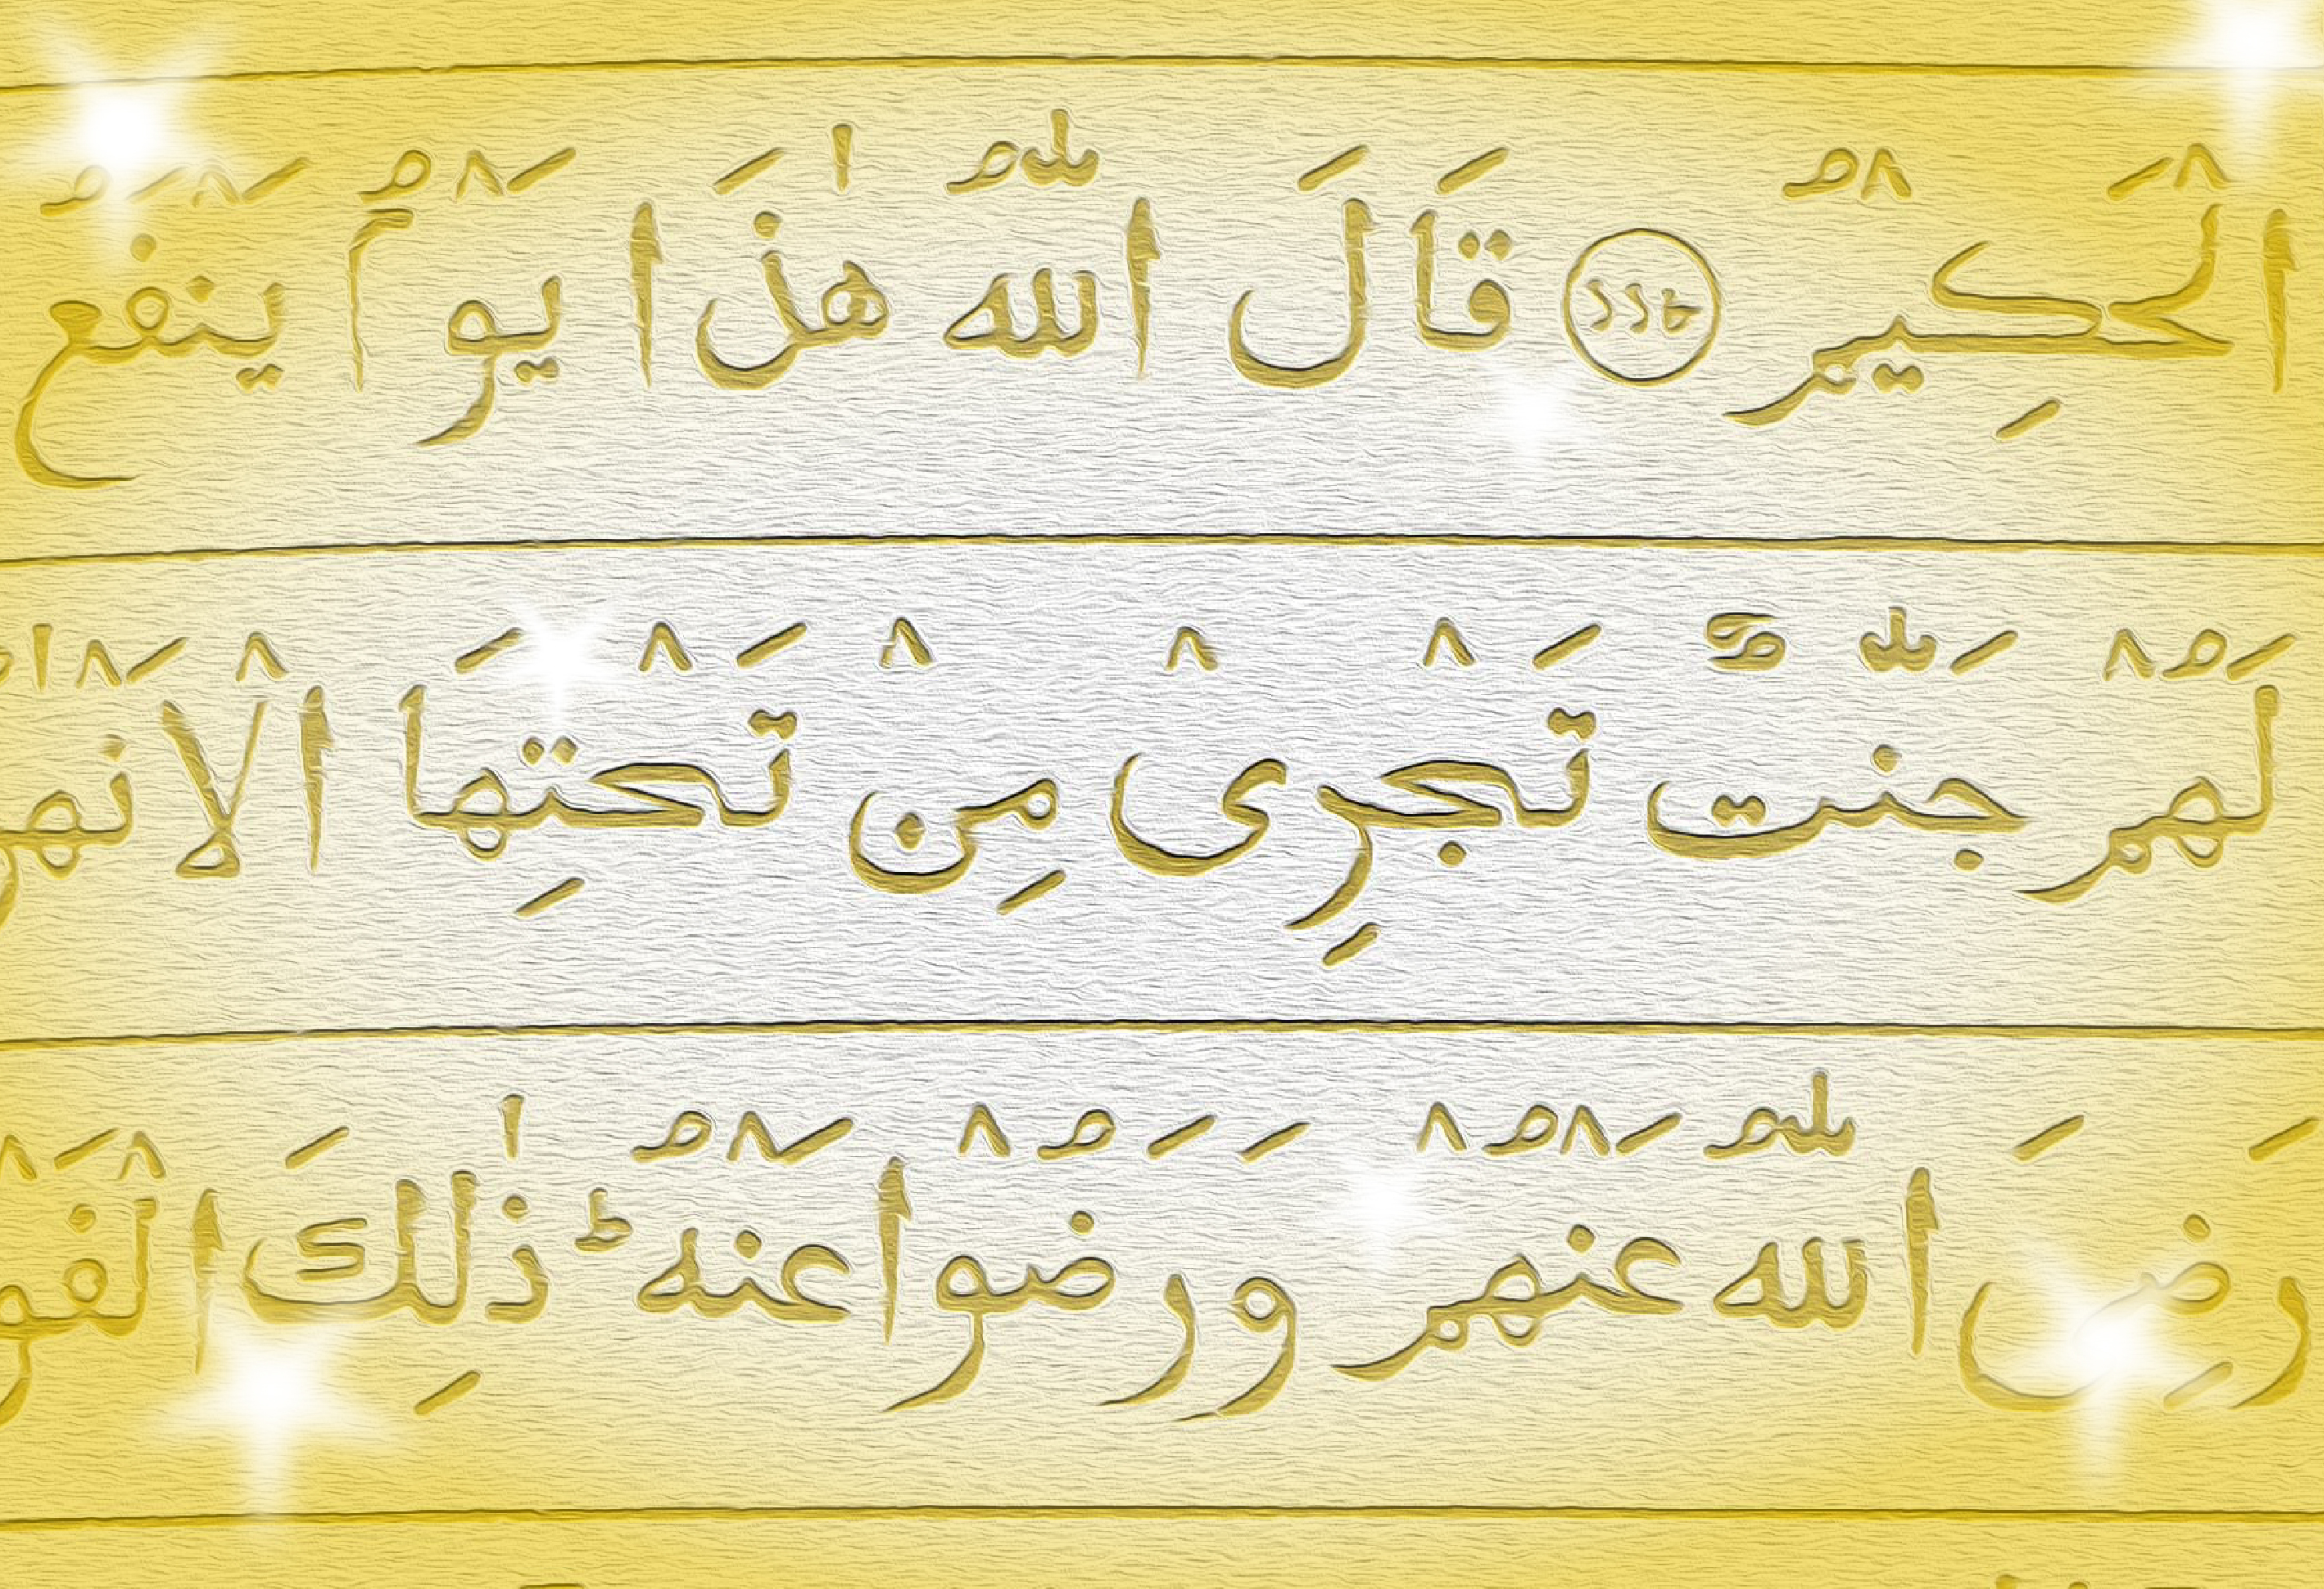 الْحَكِيْمُ قَالَ اللّٰهُ هٰذَا يَوْمُ يَنْفَعُ
لَهُمْ جَنّٰتٌ تَجْرِىْ مِنْ تَحْتِهَا الْاَنْهٰر
رَضِىَ اللّٰهُ عَنْهُمْ وَرَضُوْا عَنْهُ ؕ ذٰلِكَ الْفَوْ